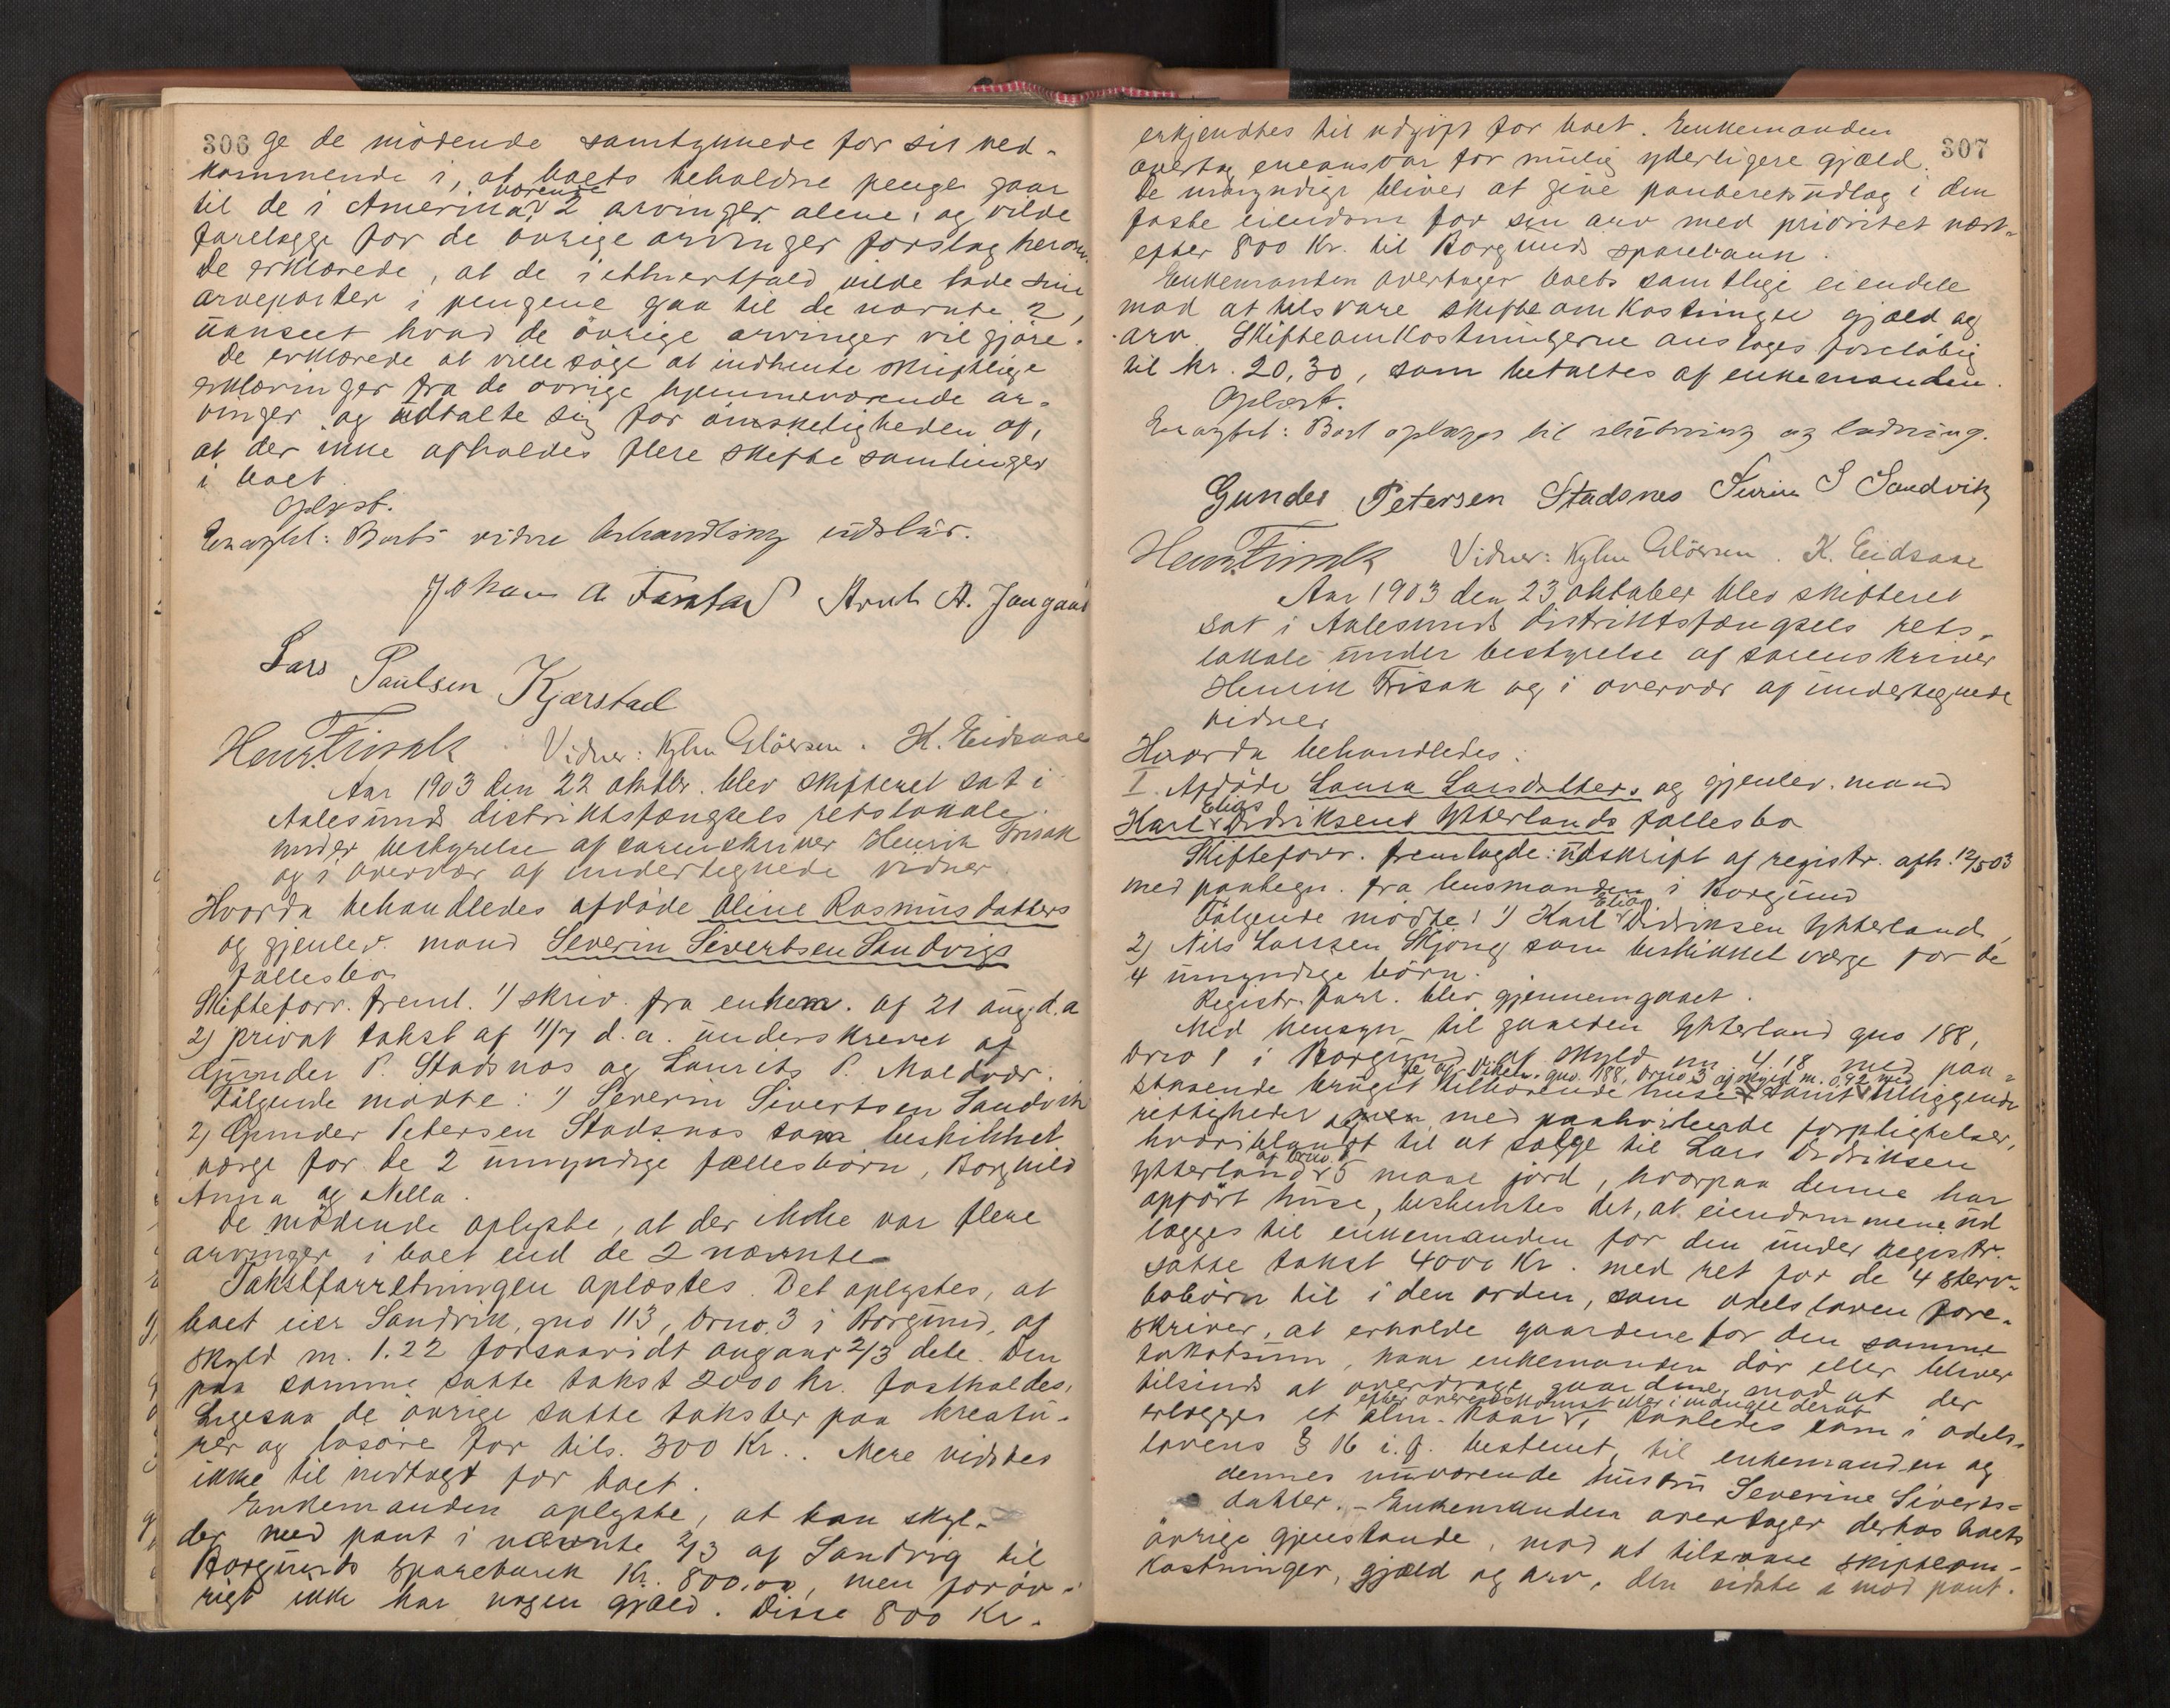 306 ge de mødende samtykkede for sit ved-
kommende i, at boets beholdne penge gaar
til de i Amerika værende 2 arvinger alene, og vilde
forelægge for de øvrige arvinger forslag herom.
De erklærede, at de i ethvertfald vilde lade sine
arveparter i pengene gaa til de nævnte 2,
uanseet hvad de øvrige arvinger vil gjøre.
De erklærede at ville søge at indhente skriftlige
erklæringer fra de øvrige hjemmeværende ar-
vinger og udtalte sig for ønskeligheden af,
at der ikke afholdes flere skiftesamlinger
i boet
Oplæst.
Eragtet: Boets videre behandling udstår.
Johan A Farstad Arnt A. Jangaard
Lars Paulsen Kjærstad
Henr. Frisak Vidner: Glöersen. K. Eidsaae
Aar 1903 den 22 oktbr. blev skifteret sat i
Aalesunds distriktsfængsels retslokale
under bestyrelse af sorenskriver Henrik Frisak
og i overvær af undertegnede vidner.
Hvorda behandledes afdøde Oline Rasmusdatters
og gjenlev. mand Severin Sivertsen Sandvigs
fællesbo
Skifteforv. freml. 1) skriv. fra enkem. af 21 aug. d.a
2) privat takst af 11/7 d.a. underskrevet af
Gunder P. Stadsnæs og Laurits P. Molvær.
Følgende mødte: 1) Severin Sivertsen Sandvik
2) Gunder Petersen Stadsnæs som beskikket
værge for de 2 umyndige fællesbørn, Borghild
Anna og Nella.
De mødende oplyste, at der ikke var flere
arvinger i boet end de 2 nævnte
Takstforretningen oplæstes. Det oplystes, at
boet eier Sandvik, gno 113, brno. 3 i Borgund, af
skyld m. 1.22 forsaavidt angaar 2/3 dele. Den
paa samme satte takst 2000 kr. fastholdes,
Ligesaa de øvrige satte takster paa kreatu-
rer og løsøre for tils. 300 Kr.. Mere vidstes
ikke til indtægt for boet.
Enkemanden oplyste, at han skyl-
der med pant i nævnte 2/3 af Sandvig til
Borgunds Sparebank Kr. 800,00, men forøv-
rigt ikke har nogen gjæld. Disse 800 Kr.
307
erkjendtes til udgift for boet. Enkemanden
overtog eneansvar for mulig yderligere gjæld.
De umyndige bliver at give panteretsudlæg i den
faste eiendom for sin arv med prioritet næst-
efter 800 Kr. til Borgunds sparebank.
Enkemanden overtager boets samtlige eiendele
mod at tilsvare skifteomkostninger gjæld og
arv. Skifteomkostningerne ansloges foreløbig
til kr. 20,30, som betaltes af enkemanden.
Oplæst.
Eragtet: Boet optages til slutning og lodning.
Gunder Petersen Stadsnes Severin S Sandvik
Henr. Frisak Vidner: Glöersen. K. Eidsaae
Aar 1903 den 23 oktober blev skifteret
sat i Aalesunds distriktsfængsels rets-
lokale under bestyrelse af sorenskriver
Henrik Frisak og i overvær af undertegnede
vidner
Hvorda behandledes:
I. Afdøde Laura Larsdatters og gjenlev. mand
Karl Elias Didriksens Ytterlands fællesbo
Skifteforv. fremlagde: udskrift af registr. afh. 12/5 03
med paategn. fra lensmanden i Borgund
Følgende mødte: 1) Karl Elias Didriksen Ytterland,
2) Nils Larssen Skjong som beskikket værge for de
4 umyndige børn.
Registr.forr. blev gjennemgaaet.
Med hensyn til gaarden Ytterland gno 188,
brno 1 i Borgund af skyld m 4,18 med paa-
staaende bruget tilhørende huse gno. 188, brno 3 af skyld m. 0,92 med samt tilliggende
rettigheder, men med paahvilende forpligtelser,
hvoriblandt til at sælge til Lars Didriksen
Ytterland af brno. 5 maal jord, hvorpaa denne har
opført huse, bestemtes det, at eiendommene ud
lægges til enkemanden for den under registr.
satte takst 4000 Kr. med ret for de 4 sterv-
bobørn til i den orden, som odelsloven fore-
skriver, at erholde gaardene for den samme
takstsum, naar enkemanden dør eller bliver
tilsinds at overdrage gaardene, mod at der
erlægges et alm. kaar efter overenskomst eller i mangel deraf saaledes som i odels-
lovens § 16 i.f. bestemt, til enkemanden og
dennes nuværende hustru Severine Siverts-
datter. - Enkemanden overtager derhos boets
øvrige gjenstande, mod at tilsvare skifteom-
kostninger, gjæld og arv, den sidste mod pant.